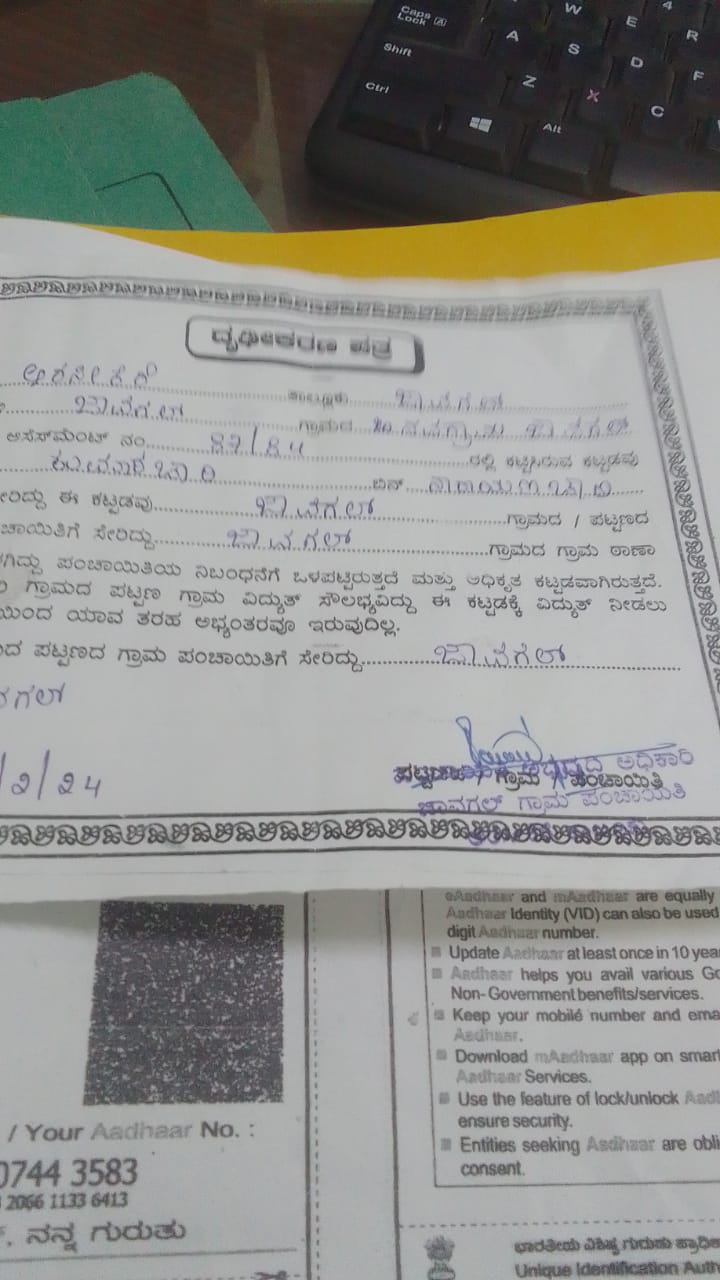 Caps Lock A
W
E
4
R
Shift
A
S
D
F
Ctrl
Z
X
C
Alt
ದೃಢೀಕರಣ ಪತ್ರ
ಅರಸೀಕೆರೆ ತಾಲ್ಲೂಕು ಜಾವಗಲ್
ಜಾವಗಲ್ ಗ್ರಾಮದ ಜಾವಗಲ್
ಅಸೆಸ್‌ಮೆಂಟ್ ನಂ. 87/84 ರಲ್ಲಿ ಕಟ್ಟಿಸಿರುವ ಕಟ್ಟಡವು
ಬಿನ್
ಸೇರಿದ್ದು ಈ ಕಟ್ಟಡವು ಜಾವಗಲ್ ಗ್ರಾಮದ / ಪಟ್ಟಣದ
ಚಾಯಿತಿಗೆ ಸೇರಿದ್ದು ಜಾವಗಲ್ ಗ್ರಾಮದ ಗ್ರಾಮ ಠಾಣಾ
ಗಿದ್ದು ಪಂಚಾಯಿತಿಯ ನಿಬಂಧನೆಗೆ ಒಳಪಟ್ಟಿರುತ್ತದೆ ಮತ್ತು ಅಧಿಕೃತ ಕಟ್ಟಡವಾಗಿರುತ್ತದೆ.
ಗ್ರಾಮದ ಪಟ್ಟಣ ಗ್ರಾಮ ವಿದ್ಯುತ್ ಸೌಲಭ್ಯವಿದ್ದು ಈ ಕಟ್ಟಡಕ್ಕೆ ವಿದ್ಯುತ್ ನೀಡಲು
ಯಿಂದ ಯಾವ ತರಹ ಅಭ್ಯಂತರವೂ ಇರುವುದಿಲ್ಲ.
ಪಟ್ಟಣದ ಗ್ರಾಮ ಪಂಚಾಯಿತಿಗೆ ಸೇರಿದ್ದು ಜಾವಗಲ್
ವಗಲ್
/2/24
ಅಧಿಕಾರಿ
ಗ್ರಾಮ ಪಂಚಾಯಿತಿ
ಜಾವಗಲ್ ಗ್ರಾಮ ಪಂಚಾಯಿತಿ
eAadhaar and mAadhaar are equally
Aadhaar Identity (VID) can also be used
digit Aadhaar number.
Update Aadhaar at least once in 10 yea
Aadhaar helps you avail various Go
Non-Government benefits/services.
Keep your mobile number and ema
Aadhaar.
Download mAadhaar app on smart
Aadhaar Services.
Use the feature of lock/unlock Aad
ensure security.
Entities seeking Aadhaar are obli
consent.
/ Your Aadhaar No. :
0744 3583
2066 1133 6413
ನನ್ನ ಗುರುತು
ಭಾರತೀಯ ವಿಶಿಷ್ಟ ಗುರುತು ಪ್ರಾಧಿ
Unique Identification Auth